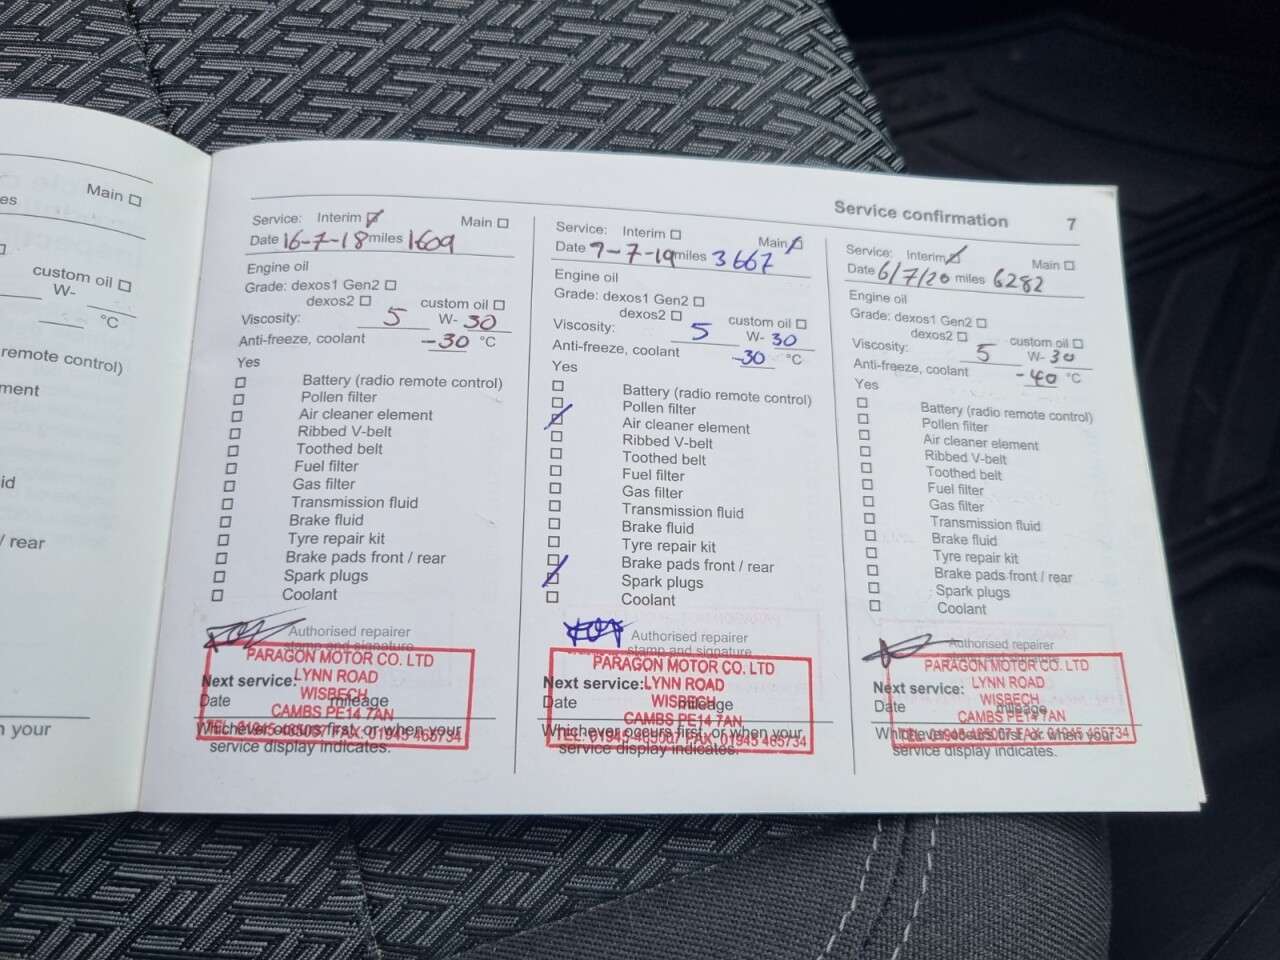 Main ☐
es
custom oil ☐
W-
°C
remote control)
ment
id
/ rear
n your
Service confirmation 7
Service: Interim ☑ Main ☐
Date 16-7-18 miles 1609
Engine oil
Grade: dexos1 Gen2 ☐
dexos2 ☐ custom oil ☐
Viscosity: 5 W- 30
Anti-freeze, coolant -30 °C
Yes
☐ Battery (radio remote control)
☐ Pollen filter
☐ Air cleaner element
☐ Ribbed V-belt
☐ Toothed belt
☐ Fuel filter
☐ Gas filter
☐ Transmission fluid
☐ Brake fluid
☐ Tyre repair kit
☐ Brake pads front / rear
☐ Spark plugs
☐ Coolant
Authorised repairer
stamp and signature
PARAGON MOTOR CO. LTD
LYNN ROAD
WISBECH
CAMBS PE14 7AN
TEL: 01945-465007 FAX: 01945 465734
Next service:
Date mileage
Whichever occurs first, or when your
service display indicates.
Service: Interim ☐ Main ☑
Date 9-7-19 miles 3667
Engine oil
Grade: dexos1 Gen2 ☐
dexos2 ☐ custom oil ☐
Viscosity: 5 W- 30
Anti-freeze, coolant -30 °C
Yes
☐ Battery (radio remote control)
☐ Pollen filter
☑ Air cleaner element
☐ Ribbed V-belt
☐ Toothed belt
☐ Fuel filter
☐ Gas filter
☐ Transmission fluid
☐ Brake fluid
☐ Tyre repair kit
☐ Brake pads front / rear
☑ Spark plugs
☐ Coolant
Authorised repairer
stamp and signature
PARAGON MOTOR CO. LTD
LYNN ROAD
WISBECH
CAMBS PE14 7AN
TEL: 01945-465007 FAX: 01945 465734
Next service:
Date mileage
Whichever occurs first, or when your
service display indicates.
Service: Interim ☑ Main ☐
Date 6/7/20 miles 6282
Engine oil
Grade: dexos1 Gen2 ☐
dexos2 ☐ custom oil ☐
Viscosity: 5 W- 30
Anti-freeze, coolant -40 °C
Yes
☐ Battery (radio remote control)
☐ Pollen filter
☐ Air cleaner element
☐ Ribbed V-belt
☐ Toothed belt
☐ Fuel filter
☐ Gas filter
☐ Transmission fluid
☐ Brake fluid
☐ Tyre repair kit
☐ Brake pads front / rear
☐ Spark plugs
☐ Coolant
Authorised repairer
stamp and signature
PARAGON MOTOR CO. LTD
LYNN ROAD
WISBECH
CAMBS PE14 7AN
TEL: 01945-465007 FAX: 01945 465734
Next service:
Date mileage
Whichever occurs first, or when your
service display indicates.